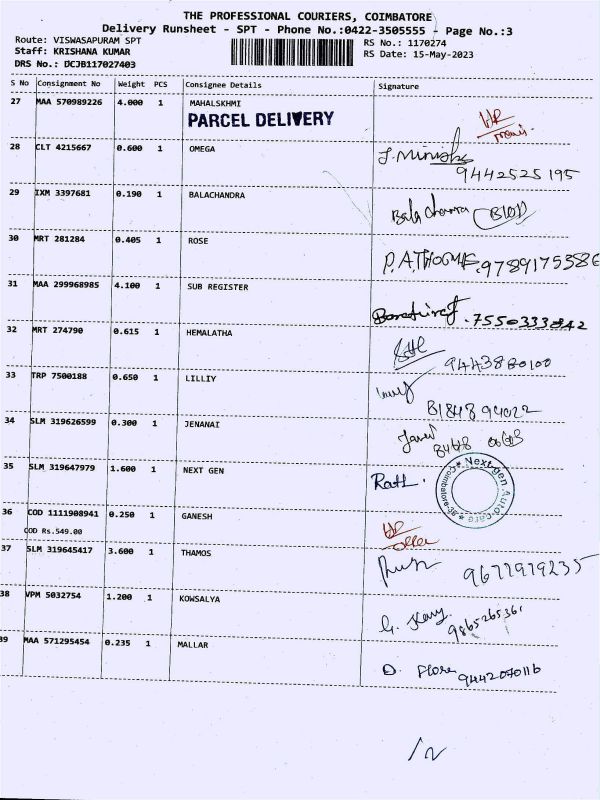 THE PROFESSIONAL COURIERS, COIMBATORE
Delivery Runsheet - SPT - Phone No.:0422-3505555 - Page No.:3
Route: VISWASAPURAM SPT
RS No.: 1170274
Staff: KRISHANA KUMAR
RS Date: 15-May-2023
DRS No.: DCJB117027403
S No Consignment No Weight PCS Consignee Details Signature
27 MAA 570989226 4.000 1 MAHALSKHMI
PARCEL DELIVERY
28 CLT 4215667 0.600 1 OMEGA
9442525195
29 IXM 3397681 0.190 1 BALACHANDRA
Bala chandra
30 MRT 281284 0.405 1 ROSE
9789175386
31 MAA 299968985 4.100 1 SUB REGISTER
7550333842
32 MRT 274790 0.615 1 HEMALATHA
9443880100
33 TRP 7500188 0.650 1 LILLIY
34 SLM 319626599 0.300 1 JENANAI
35 SLM 319647979 1.600 1 NEXT GEN
Next gen Auto care
36 COD 1111908941 0.250 1 GANESH
COD Rs.549.00
37 SLM 319645417 3.600 1 THAMOS
38 VPM 5032754 1.200 1 KOWSALYA
9865265361
39 MAA 571295454 0.235 1 MALLAR
D. Flora 9442070116